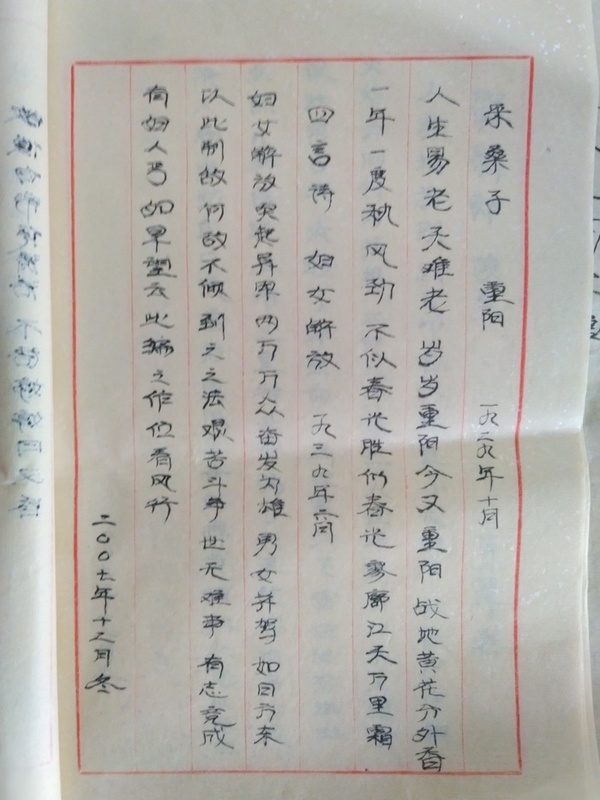 采桑子 重阳 一九二九年十月
人生易老天难老 岁岁重阳今又重阳战地黄花分外香
一年一度秋风劲 不似春光胜似春光寥廓江天万里霜
四言诗 妇女解放 一九三九年六月
妇女解放突起异军两万万众奋发为雄 男女并驾 如日方东
以此制敌何敌不倾到之之法艰苦斗争世无难事 有志竟成
有妇人焉如旱望云此编之作伫看风行
二〇〇七年十二月冬